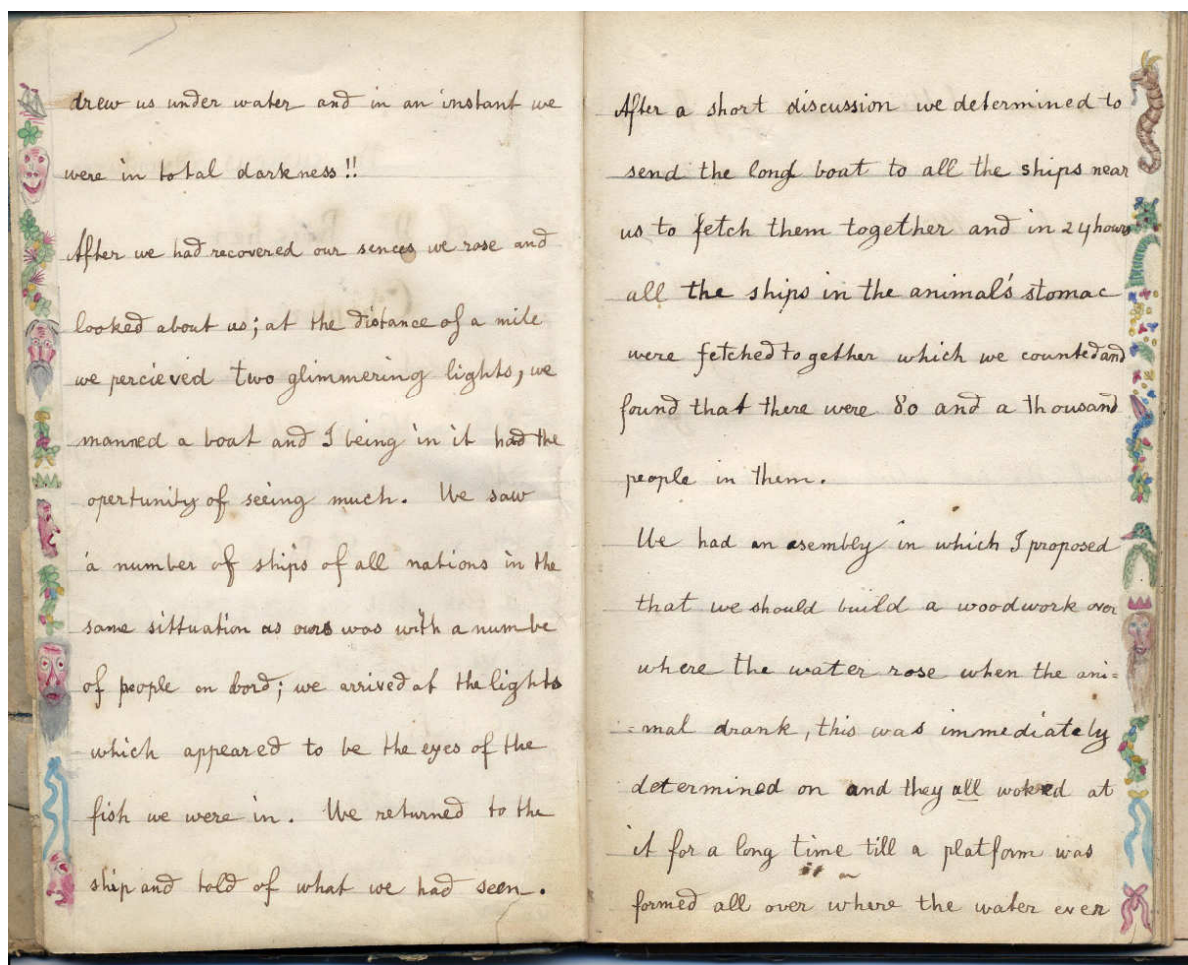 drew us under water and in an instant we
were in total darkness!!
After we had recovered our sences we rose and
looked about us; at the distance of a mile
we percieved two glimmering lights, we
manned a boat and I being in it had the
opertunity of seeing much. We saw
a number of ships of all nations in the
same sittuation as ours was with a numbe
of people on bord; we arrived at the lights
which appeared to be the eyes of the
fish we were in. We returned to the
ship and told of what we had seen.
After a short discussion we determined to
send the long boat to all the ships near
us to fetch them together and in 24 hours
all the ships in the animal's stomac
were fetched together which we counted and
found that there were 80 and a thousand
people in them.
We had an asembly in which I proposed
that we should build a woodwork over
where the water rose when the ani=
=mal drank, this was immediately
determined on and they all woked at
it for a long time till a platform was
formed all over where the water ever